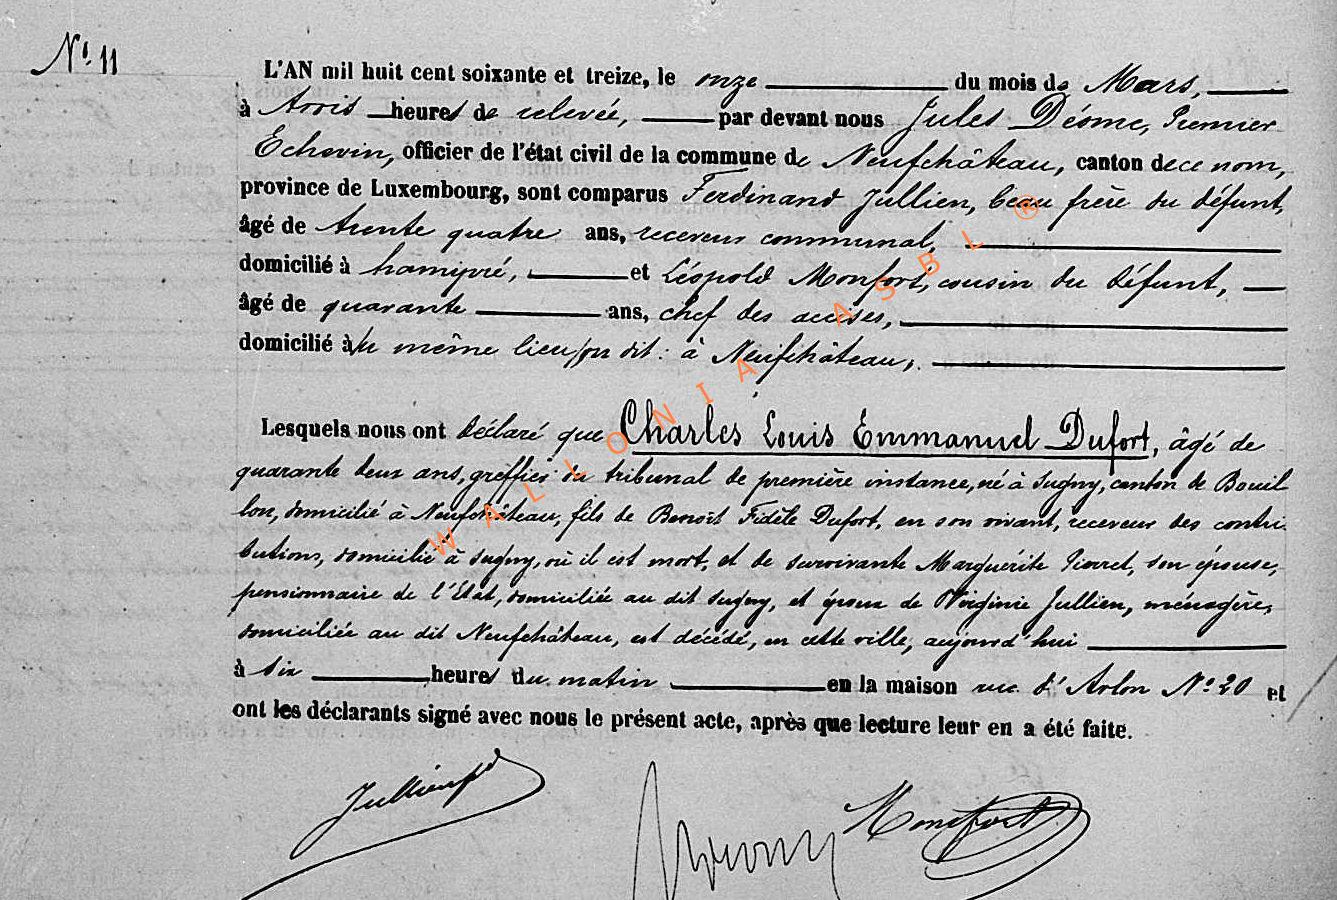 N° 11
L'AN mil huit cent soixante et treize, le onze du mois de Mars,
à trois heures de relevée, par devant nous Jules Déome, Premier
Echevin, officier de l'état civil de la commune de Neufchâteau, canton de ce nom,
province de Luxembourg, sont comparus Ferdinand Jullien, beau frère du défunt,
âgé de trente quatre ans, receveur communal,
domicilié à hamipré, et Léopold Monfort, cousin du défunt,
âgé de quarante ans, chef des accises,
domicilié à/u même lieu/on dit : à Neufchâteau,
Lesquels nous ont déclaré que Charles Louis Emmanuel Dufort, âgé de
quarante deux ans, greffier du tribunal de première instance, né à Sugny, canton de Bouil
lon, domicilié à Neufchâteau, fils de Benoît Fidèle Dufort, en son vivant, receveur des contri
butions, domicilié à Sugny, où il est mort, et de survivante Marguérite Pierret, son épouse,
pensionnaire de l'Etat, domiciliée au dit Sugny, et époux de Virginie Jullien, ménagère,
domiciliée au dit Neufchâteau, est décédé, en cette ville, aujourd'hui
à six heures du matin en la maison rue d'Arlon N° 20 et
ont les déclarants signé avec nous le présent acte, après que lecture leur en a été faite.
Jullien fd
Monfort
WALLONIA ASBL ®